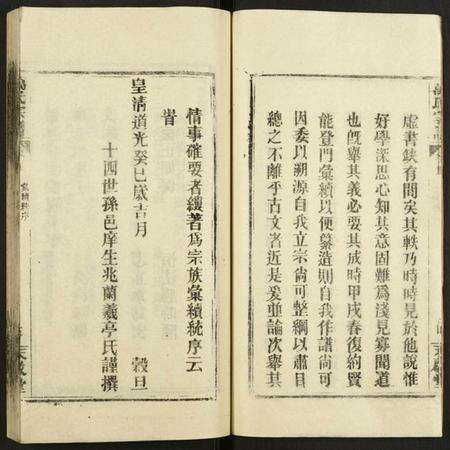 虛書缺有間矣其軼乃時時見於他說惟
好學深思心知其意固難爲淺見寡聞道
也旣舉其義必要其成時甲戌春復約賢
能登門彙續以便纂造則自我作譜尙可
因委以朔源自我立宗尙可整綱以肅目
總之不離乎古文者近是爰並論次舉其
情事確要者纓著爲宗族彙續統序云
旹
皇清道光癸巳歲吉月 穀旦
十四世孫邑庠生兆蘭羲亭氏謹撰